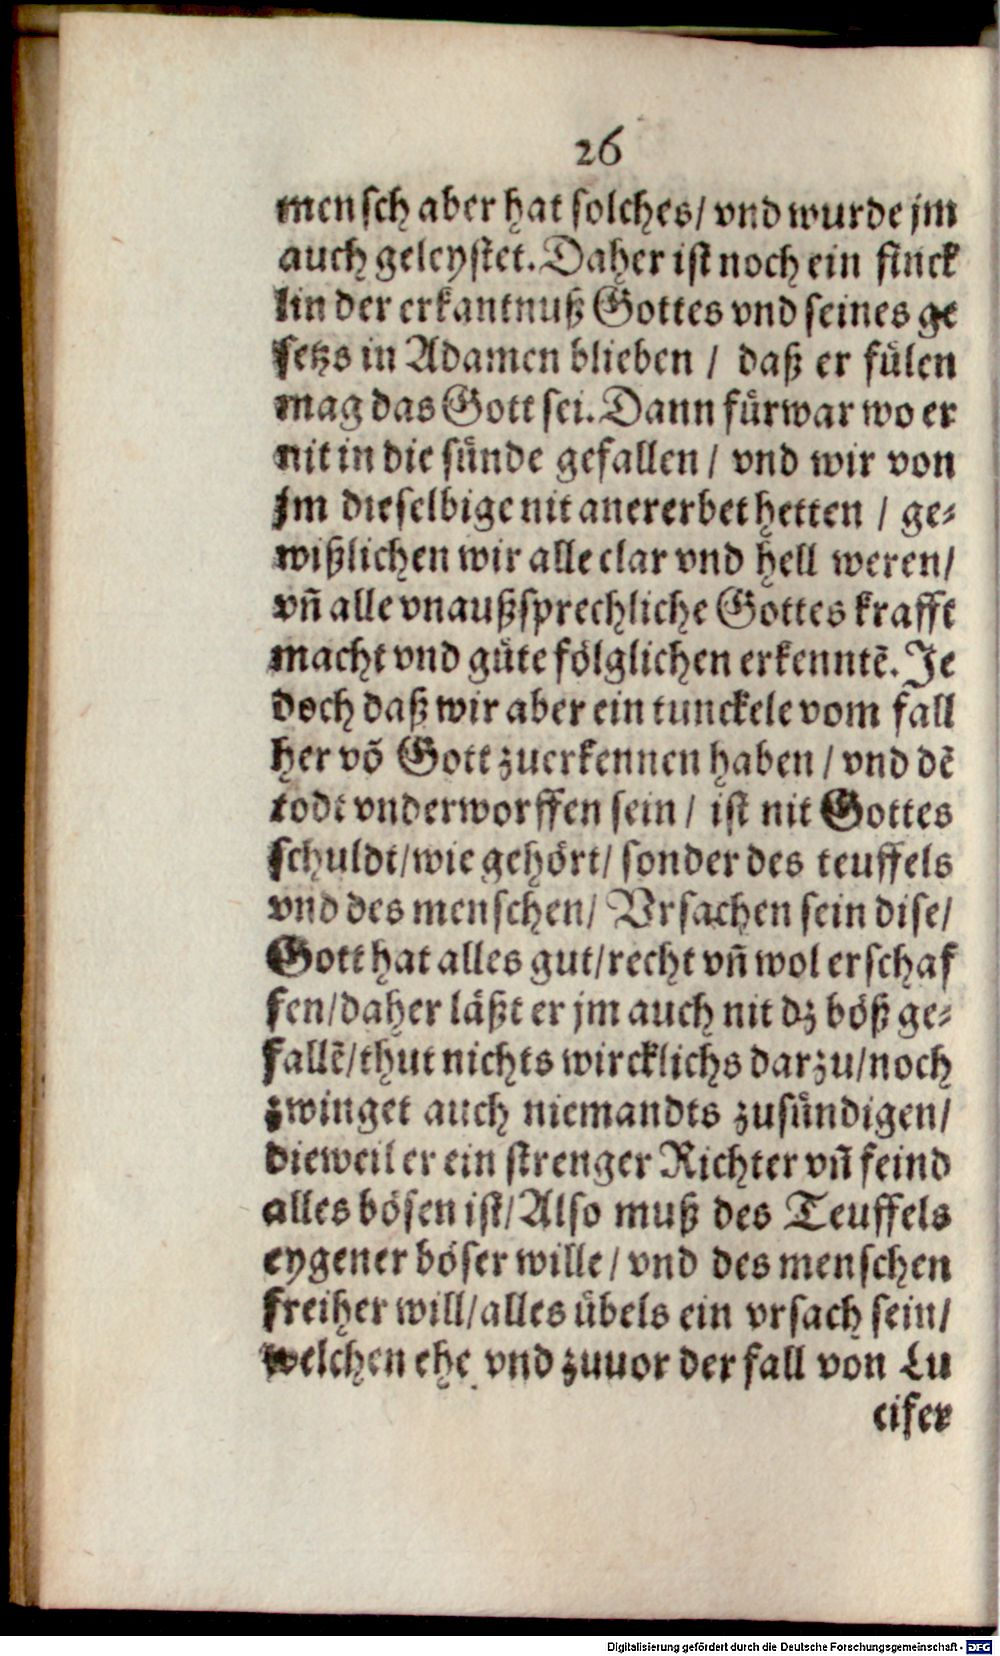 26
mensch aber hat solches/ vnd wurde jm
auch geleystet. Daher ist noch ein finck
lin der erkantnuß Gottes vnd seines ge
setzs in Adamen blieben / daß er fülen
mag das Gott sei. Dann fürwar wo er
nit in die sünde gefallen / vnd wir von
jm dieselbige nit anererbet hetten / ge-
wißlichen wir alle clar vnd hell weren/
vñ alle vnaußsprechliche Gottes krafft
macht vnd güte fölglichen erkenntẽ. Je
doch daß wir aber ein tunckele vom fall
her võ Gott zuerkennen haben / vnd dẽ
todt vnderworffen sein / ist nit Gottes
schuldt/wie gehört/ sonder des teuffels
vnd des menschen/ Vrsachen sein dise/
Gott hat alles gut/recht vñ wol erschaf
fen/daher läßt er jm auch nit dz böß ge-
fallẽ/thut nichts wircklichs darzu/noch
zwinget auch niemandts zusündigen/
dieweil er ein strenger Richter vñ feind
alles bösen ist/Also muß des Teuffels
eygener böser wille / vnd des menschen
freiher will/alles übels ein vrsach sein/
welchen ehe vnd zuuor der fall von Lu
cifer
Digitalisierung gefördert durch die Deutsche Forschungsgemeinschaft - DFG